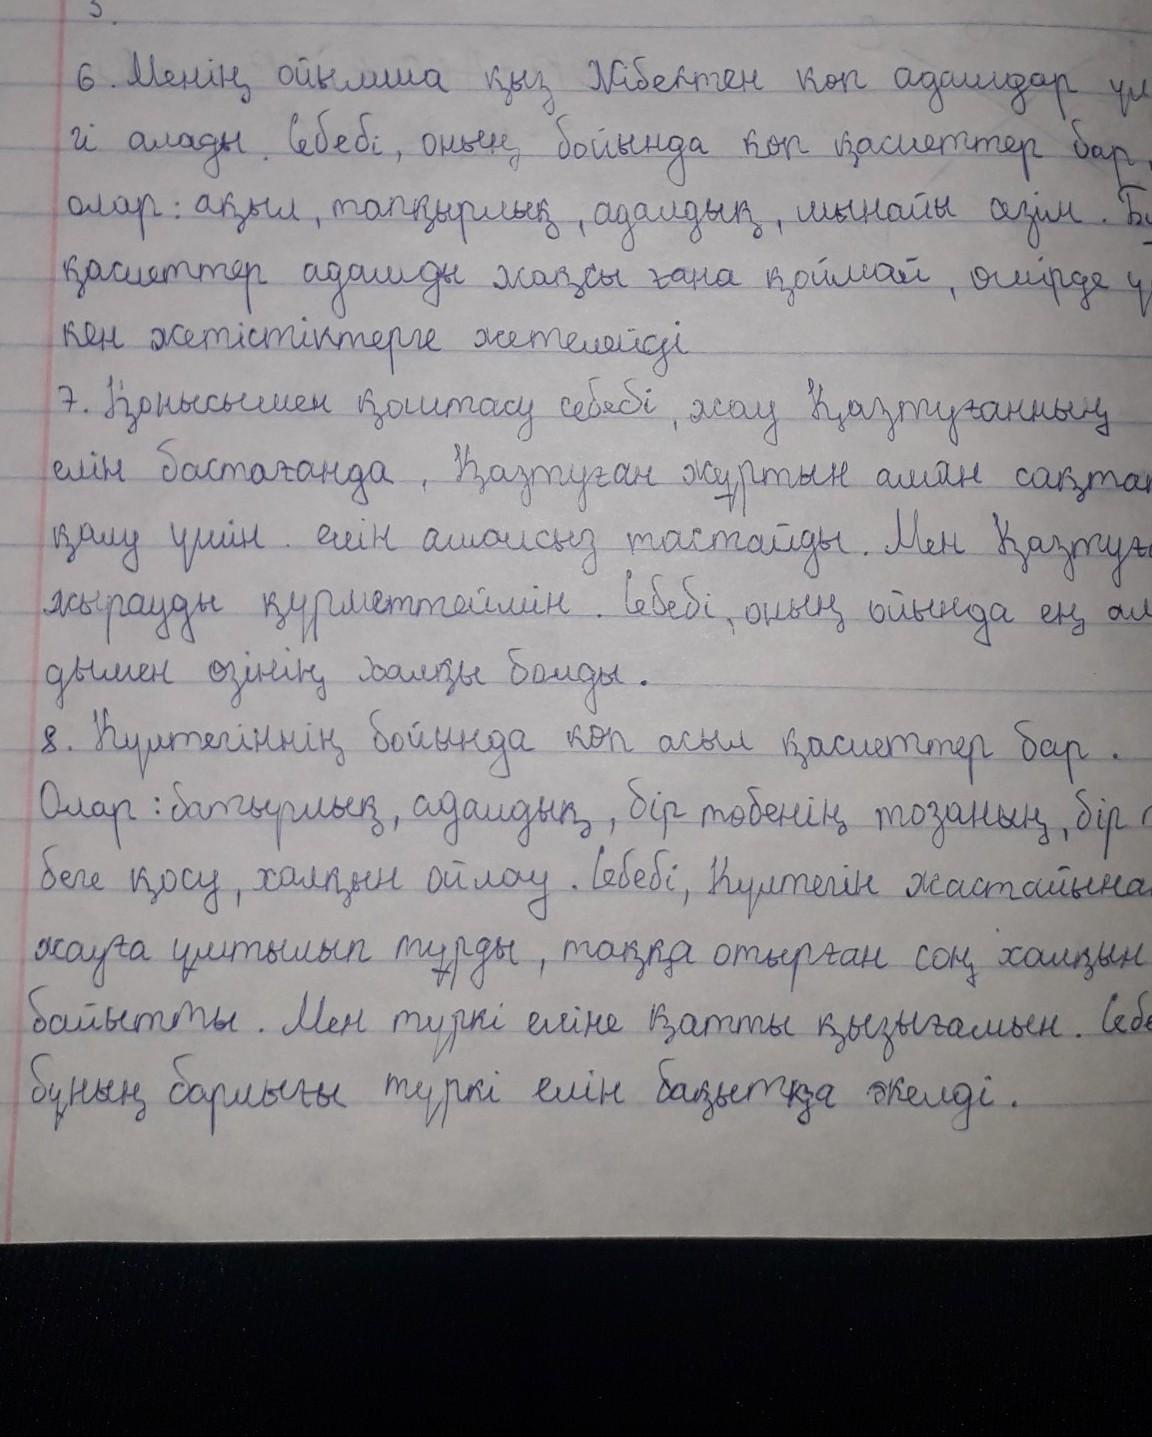 6. Менің ойымша қыз Жібектен көп адамдар үл
гі алады. Себебі, оның бойында көп қасиеттер бар,
олар: ақыл, тапқырлық, адалдық, шынайы сезім. Бұ
қасиеттер адамды жақсы ғана қоймай, өмірде ү
кен жетістіктерге жетелейді
7. Қонысымен қоштасу себебі, жау Қазтуғанның
елін бастағанда, Қазтуған жұртын аман сақтап
қалу үшін елін амалсыз тастайды. Мен Қазтуға
жырауды құрметтеймін. Себебі, оның ойында ең ал
дымен өзінің халқы болды.
8. Күлтегіннің бойында көп асыл қасиеттер бар.
Олар: батырлық, адалдық, бір төбенің тозаның, бір т
беге қосу, халқын ойлау. Себебі, Күлтегін жастайына
жауға ұмтылып тұрды, таққа отырған соң халқын
байытты. Мен түркі еліне қатты қызығамын. Себе
бұның барлығы түркі елін бақытқа әкелді.